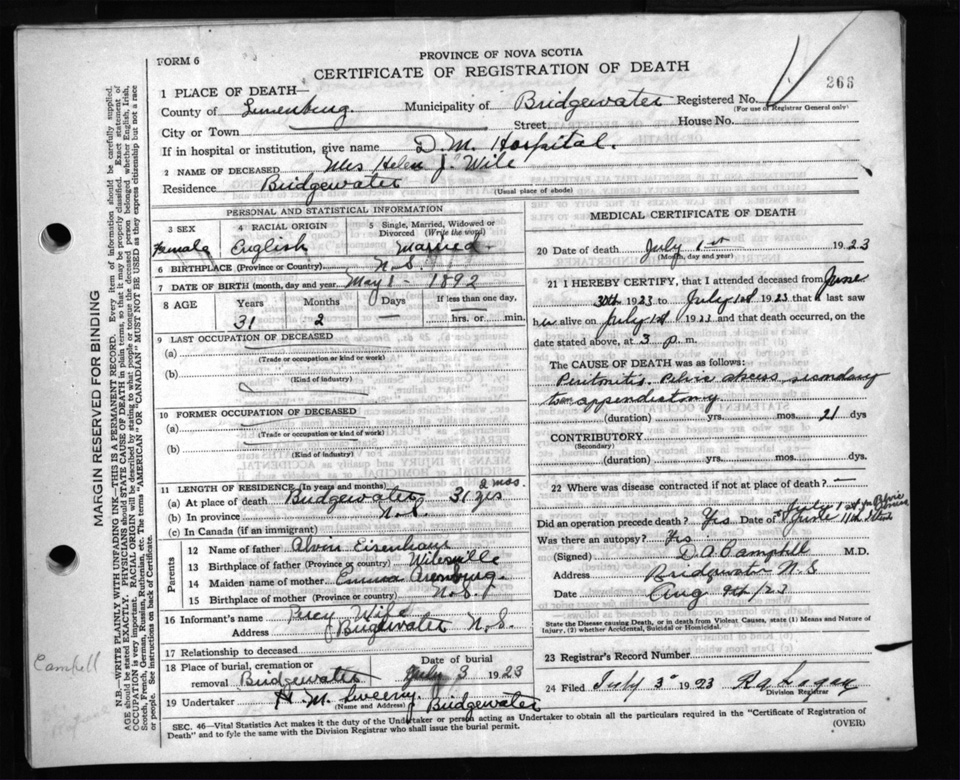 PROVINCE OF NOVA SCOTIA
FORM 6
CERTIFICATE OF REGISTRATION OF DEATH
266
1 PLACE OF DEATH—
County of Lunenburg. Municipality of Bridgewater Registered No.
(For use of Registrar General only)
City or Town Street House No.
If in hospital or institution, give name D. M. Hospital.
2 NAME OF DECEASED Mrs Helen J. Wile
Residence Bridgewater (Usual place of abode)
PERSONAL AND STATISTICAL INFORMATION
3 SEX 4 RACIAL ORIGIN 5 Single, Married, Widowed or Divorced (Write the word)
Female English Married
6 BIRTHPLACE (Province or Country) N.S.
7 DATE OF BIRTH (month, day and year) May 1 - 1892
8 AGE Years Months Days If less than one day,
31 2 — hrs. or min.
9 LAST OCCUPATION OF DECEASED
(a)
(Trade or occupation or kind of work)
(b)
(Kind of industry)
10 FORMER OCCUPATION OF DECEASED
(a)
(Trade or occupation or kind of work)
(b)
(Kind of industry)
11 LENGTH OF RESIDENCE (In years and months)
(a) At place of death Bridgewater 31 yrs 2 mos.
(b) In province N.S.
(c) In Canada (if an immigrant)
Parents
12 Name of father Alvin Eisenhaur
13 Birthplace of father (Province or country) Wileville
14 Maiden name of mother Emma Arenburg.
15 Birthplace of mother (Province or country) N.S.
16 Informant's name Percy Wile
Address Bridgewater N.S.
17 Relationship to deceased
18 Place of burial, cremation or removal Bridgewater Date of burial July 3 1923
19 Undertaker H. M. Sweeny. Bridgewater
(Name and Address)
MEDICAL CERTIFICATE OF DEATH
20 Date of death July 1st 1923
(Month, day and year)
21 I HEREBY CERTIFY, that I attended deceased from June
30th 1923 to July 1st 1923 that I last saw
her alive on July 1st 1923 and that death occurred, on the
date stated above, at 3 p. m.
The CAUSE OF DEATH was as follows:
Peritonitis. Pelvic abscess secondary
to an appendictomy.
(duration) yrs. mos. 21 dys
CONTRIBUTORY
(Secondary)
(duration) yrs. mos. dys.
22 Where was disease contracted if not at place of death? —
Did an operation precede death? Yes Date of July 1st for Pelvic
June 11th
Was there an autopsy? Yes
(Signed) D.A. Campbell M.D.
Address Bridgewater N.S
Date Aug 9th/23
State the Disease causing Death, or in death from Violent Causes, state (1) Means and Nature of Injury, (2) whether Accidental, Suicidal or Homicidal.
23 Registrar's Record Number
24 Filed July 3rd 1923
Division Registrar
SEC. 46—Vital Statistics Act makes it the duty of the Undertaker or person acting as Undertaker to obtain all the particulars required in the "Certificate of Registration of
Death" and to fyle the same with the Division Registrar who shall issue the burial permit. (OVER)
MARGIN RESERVED FOR BINDING
N.B.—WRITE PLAINLY WITH UNFADING INK—THIS IS A PERMANENT RECORD. Every item of information should be carefully supplied.
AGE should be stated EXACTLY. PHYSICIANS should state CAUSE OF DEATH in plain terms, so that it may be properly classified. Exact statement of
OCCUPATION is very important. RACIAL ORIGIN will be described by stating to what people or tongue the deceased person belonged whether English, Irish,
Scotch, French, German, Russian, Ruthenian, etc. The terms "AMERICAN" OR "CANADIAN" MUST NOT BE USED as they express citizenship but not a race
or people. See instructions on back of Certificate.
Campell